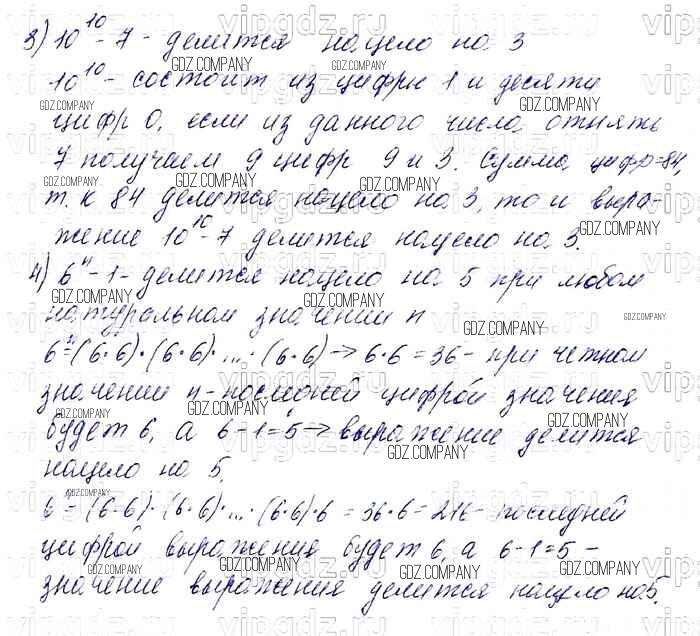 3) 10¹⁰ - 7 - делится нацело на 3
10¹⁰ - состоит из цифры 1 и десяти
цифр 0, если из данного числа отнять
7 получаем 9 цифр 9 и 3. Сумма цифр = 84,
т. к 84 делится нацело на 3, то и выра-
жение 10¹⁰ - 7 делится нацело на 3.
4) 6ⁿ - 1 - делится нацело на 5 при любом
натуральном значении n
6ⁿ = (6·6)·(6·6)·...·(6·6) → 6·6 = 36 - при четном
значении n - последней цифрой значения
будет 6, а 6 - 1 = 5 → выражение делится
нацело на 5.
6ⁿ = (6·6)·(6·6)·...·(6·6)·6 = 36·6 = 216 - последней
цифрой выражения будет 6, а 6-1=5 -
значение выражения делится нацело на 5.
vipgdz.ru
GDZ.COMPANY